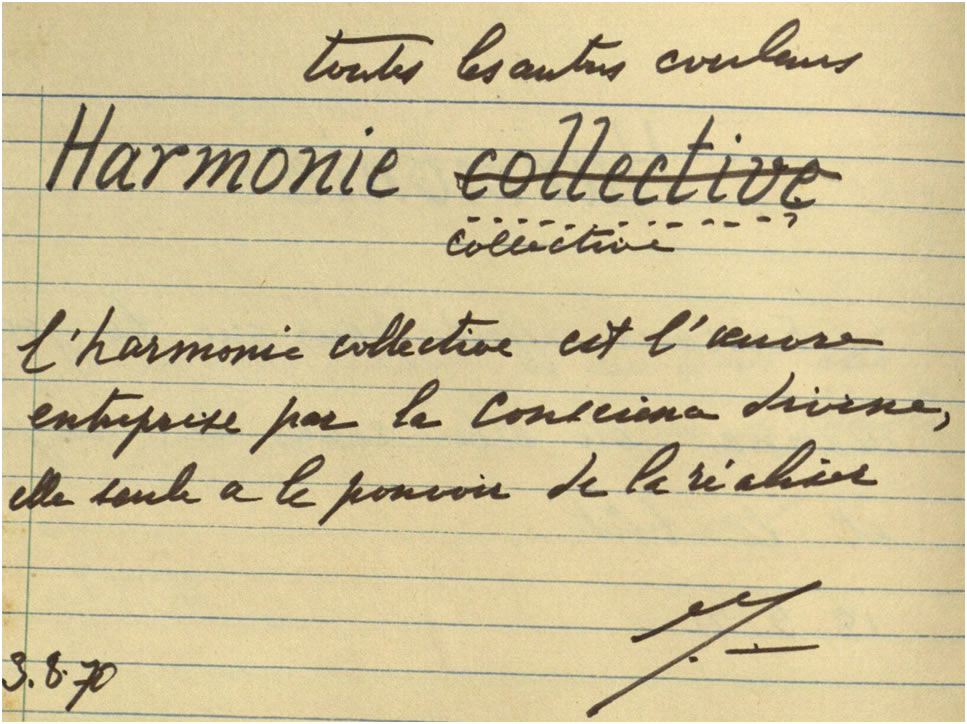 toutes les autres couleurs
Harmonie collective
collective
l'harmonie collective est l'œuvre
entreprise par la Conscience divine,
elle seule a le pouvoir de la réaliser
3.8.70